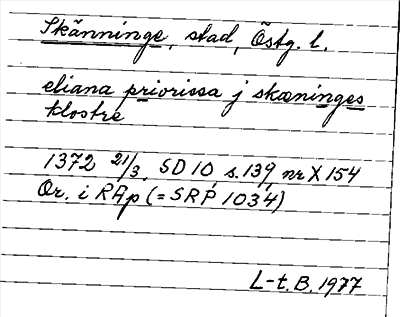 Skänninge, stad, Östg. l.
eliana priorissa j skæninges
klostre
1372 21/3. SD 10 s. 139, nr X 154
Or. i RAp (= SRP 1034)
L-t. B. 1977